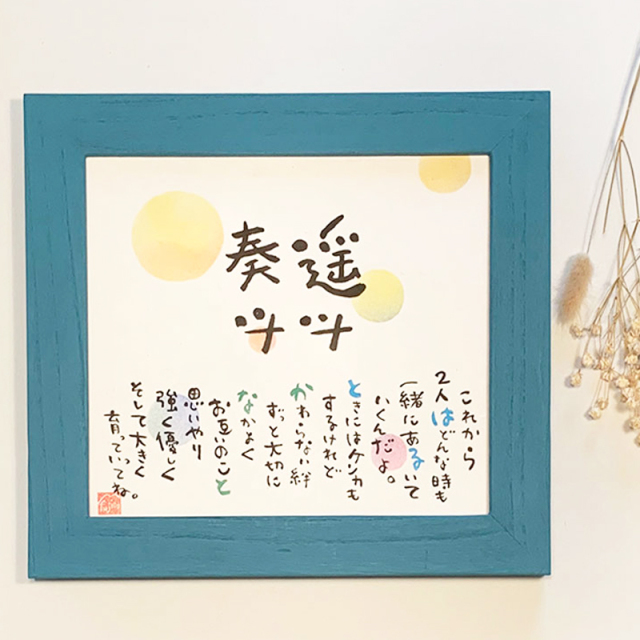 遥斗
奏斗
これから
2人はどんな時も
一緒にあるいて
いくんだよ。
ときにはケンカも
するけれど
かわらない絆
ずっと大切に
なかよく
お互いのこと
思いやり
強く優しく
そして大きく
育っていってね。